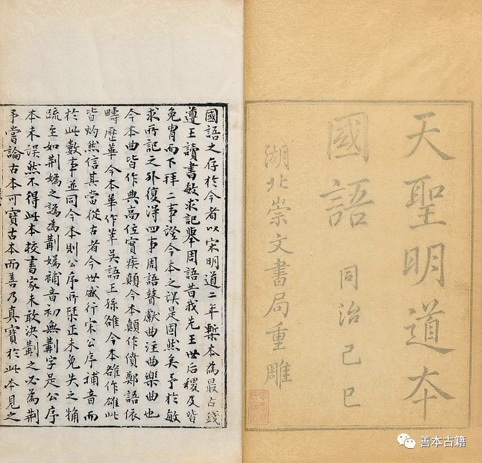 天聖明道本
國語 同治己巳
湖北崇文書局重雕
國語之存於今者以宋明道二年槧本為最古錢
遵王讀書敏求記舉周語昔我先王世后稷及皆
免胄而下拜二事證今本之誤是固然矣予於敏
求所記之外復得四事周語瞽獻曲注曲樂曲也
今本曲皆作典高位實疾顛今本顛作僨鄭語依
疇歷華今本華作莘吳語王孫雒今本雒作雄此
皆灼然信其當從古者今世盛行宋公序補音而
於此數事並同今本則公序所栞正未免失之觕
疏至如荆媯之譌為
補音初無
字是公序
本未誤然不得此本校書家未敢決
之必為荆
予嘗論古本可寶古本而善乃真寶於此本見之
善本古籍